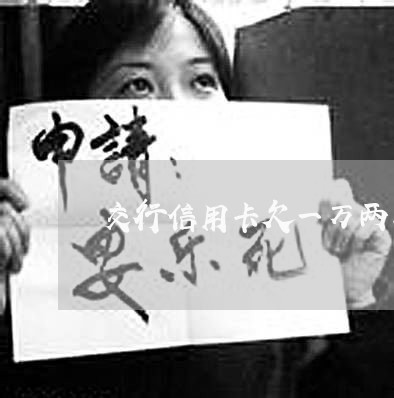 申請:
交行信用卡欠一万两
要乐死